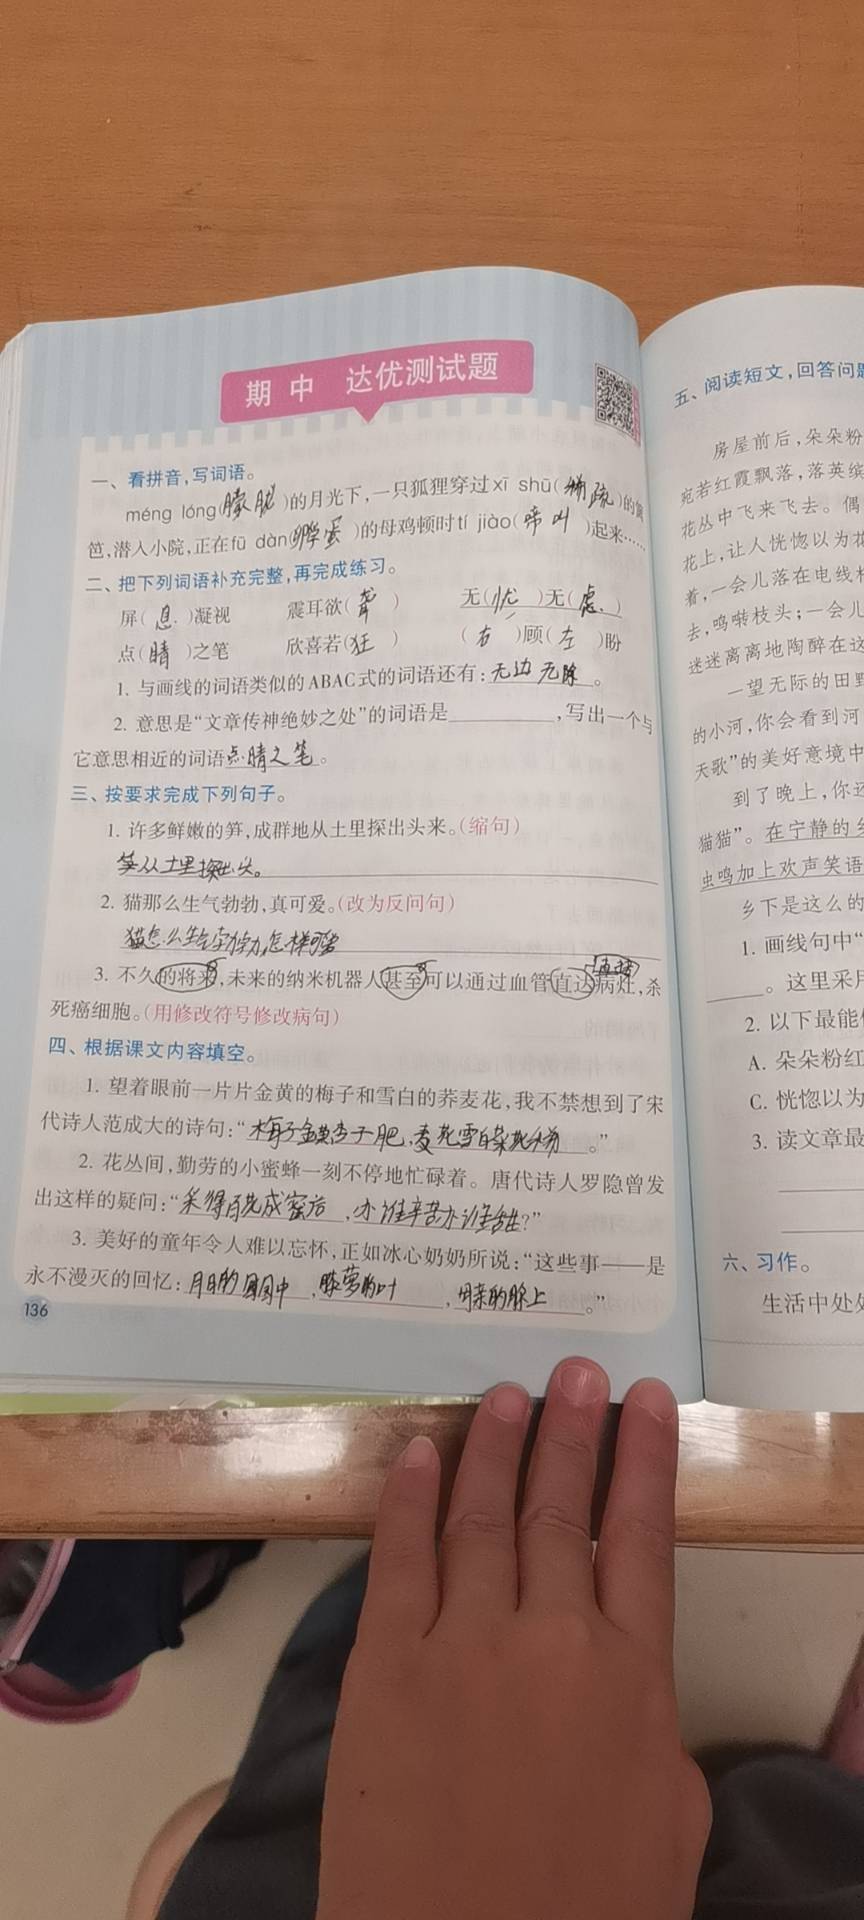 期中 达优测试题
一、看拼音,写词语。
méng lóng(朦胧)的月光下,一只狐狸穿过xī shū(稀疏)的篱
笆,潜入小院,正在fū dàn(孵蛋)的母鸡顿时tí jiào(啼叫)起来……
二、把下列词语补充完整,再完成练习。
屏(息)凝视 震耳欲(聋) 无(忧)无(虑)
点(睛)之笔 欣喜若(狂) (右)顾(左)盼
1. 与画线的词语类似的ABAC式的词语还有:无边无际。
2. 意思是“文章传神绝妙之处”的词语是________,写出一个与
它意思相近的词语点睛之笔。
三、按要求完成下列句子。
1. 许多鲜嫩的笋,成群地从土里探出头来。(缩句)
笋从土里探出头。
2. 猫那么生气勃勃,真可爱。(改为反问句)
猫怎么生气勃勃,怎样可爱
3. 不久的将来,未来的纳米机器人甚至可以通过血管直达病灶,杀
直接
死癌细胞。(用修改符号修改病句)
四、根据课文内容填空。
1. 望着眼前一片片金黄的梅子和雪白的荞麦花,我不禁想到了宋
代诗人范成大的诗句:“梅子金黄杏子肥,麦花雪白菜花稀。”
2. 花丛间,勤劳的小蜜蜂一刻不停地忙碌着。唐代诗人罗隐曾发
出这样的疑问:“采得百花成蜜后,为谁辛苦为谁甜?”
3. 美好的童年令人难以忘怀,正如冰心奶奶所说:“这些事——是
永不漫灭的回忆:月明的园中,藤萝的叶下,母亲的膝上。”
136
五、阅读短文,回答问题
房屋前后,朵朵粉
宛若红霞飘落,落英缤
花丛中飞来飞去。偶
花上,让人恍惚以为花
着,一会儿落在电线杆
去,鸣啭枝头;一会儿
迷迷离离地陶醉在这
一望无际的田野
的小河,你会看到河
天歌”的美好意境中
到了晚上,你还
猫猫”。在宁静的乡
虫鸣加上欢声笑语
乡下是这么的
1. 画线句中“
____。这里采用
2. 以下最能
A. 朵朵粉红
C. 恍惚以为
3. 读文章最
六、习作。
生活中处处